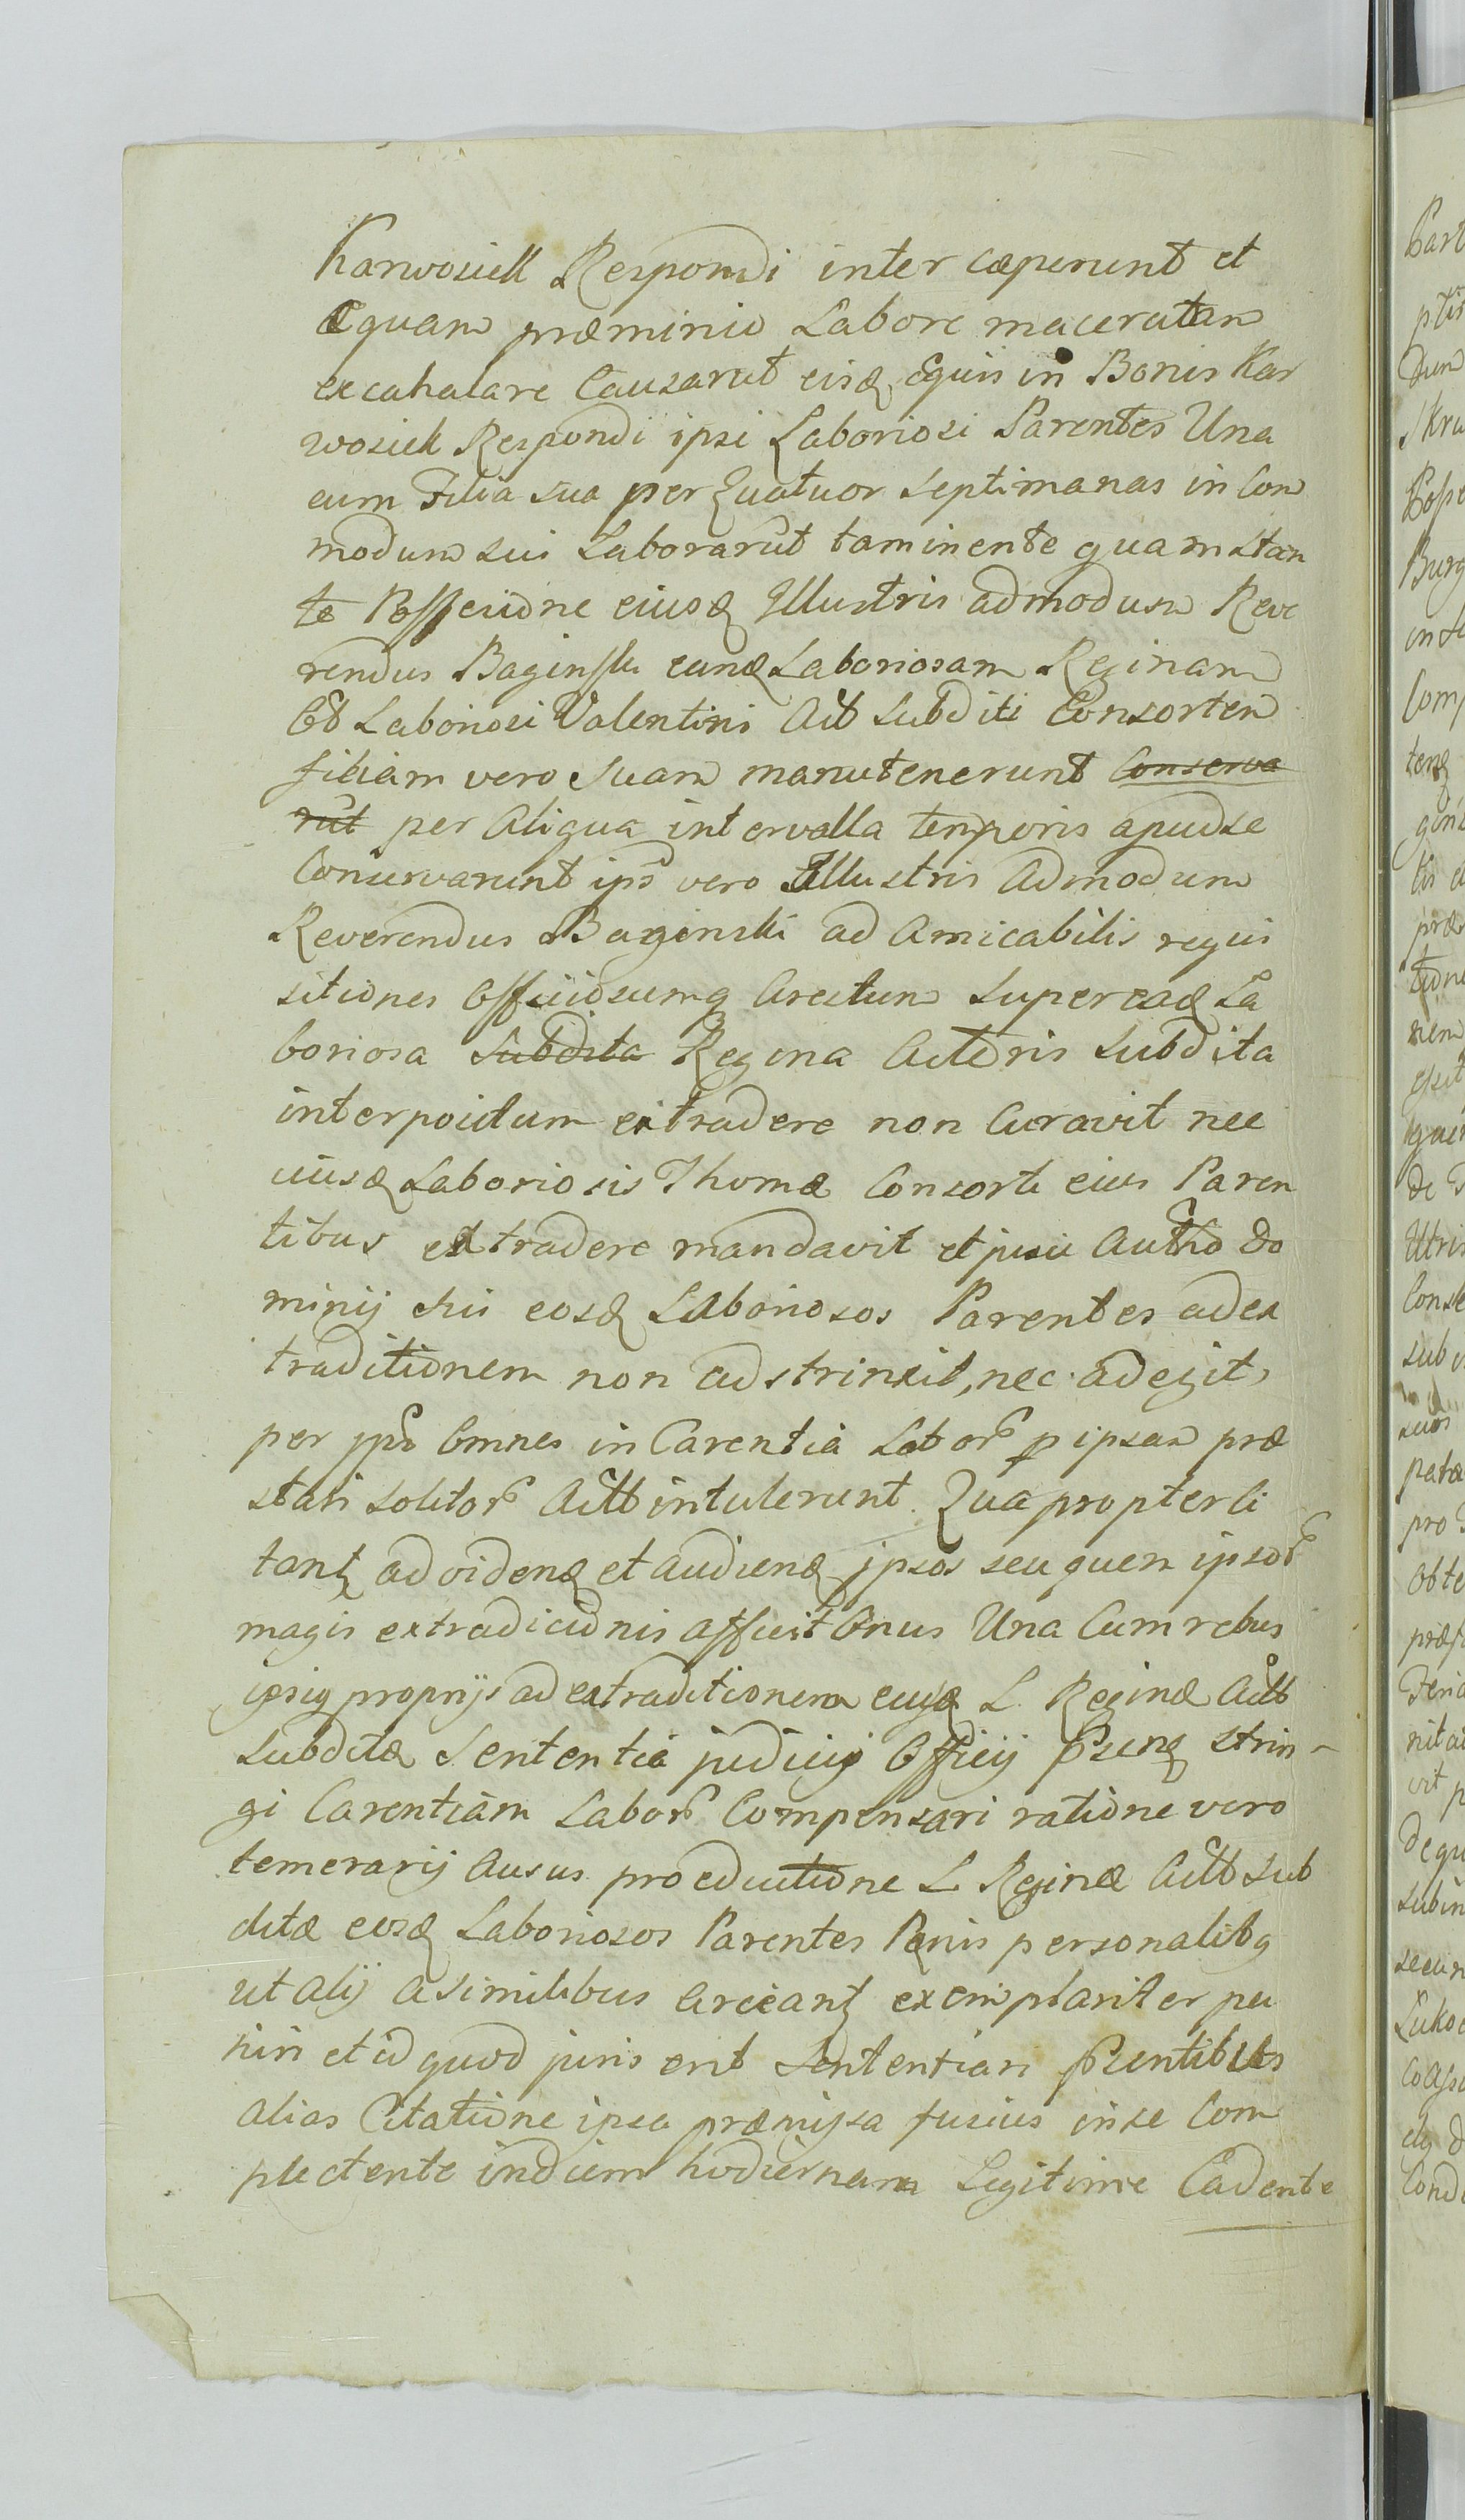 Karwosiek Respondi inter cæperunt et
Equam præminio Labore maceratam
excahalare Causarūt eisq̃ Equis in Bonis Kar
wosiek Respondi ipsi Laboriosi Parentes Una
cum Filia sua per Quatuor septimanas in Com
modum sui Laborarūt tam in ente quam stan
te Possessione eiusq̃ Illustris admodum Reve
rendus Baginski eanq̃ Laboriosam Reginam
Laboriosi Valentini Act subditi Consortem
filiam vero suam manutenerunt Conserva
rūt per Aliqua intervalla temporis apud se
Conservarunt ips vero Illustris Admodum
Reverendus Baginski ad Amicabilis requi
sitiones Officiosumq Arestum super eadq̃ La
boriosa Subdita Regina Actoris subdita
interpositum extradere non Curavit nec
iiisdq̃ Laboriosis Thomæ Consorti eius Paren
tibus extradere mandavit et jure Autho Do
minij sui eosdq̃ Laboriosos Parentes ad ex
traditionem non adstrinxit, nec adegit,
per Omnes in Carentia Labor ipsam præ
stari solitor Actt intulerunt. Qua propter Ci
tantq̃ ad videndq̃ et audiendq̃ ipsos seu quem ipsor
magis extradicionis afficit Onus Una Cum rebus
ipsiq proprijs ad extraditionem eiusdq̃ L. Reginæ Actt
subditæ Sententia judicij Officij Psenq̃ strin-
gi Carentiam Labor Compensari ratione vero
temerarij Ausus pro eductione L Reginæ Actt sub
ditæ eosdq̃ Laboriosos Parentes Pœnis personalibq
ut alij a similibus Arceantq̃ exemplariter pu
niri et id quod juris erit Sententiari Psentibus
alias Citatione ipsa præmissa fusius in se Com
plectente in diem hodiernam Legitime Cadente